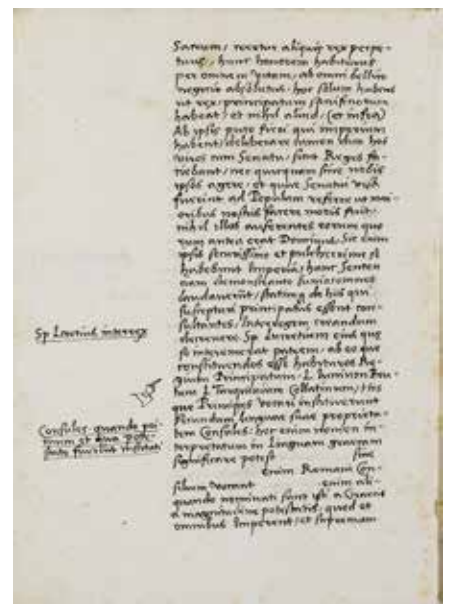 Sacrum / vocetur aliquis rex perpe-
tuus / hunc honorem habiturus
per omnem vitam, ab omni bellico
negotio absolutus. hoc solum habens
ut rex / principatum sacrificiorum
habeat / et nihil aliud / (et infra)
Ab ipsis puto fieri qui imperium
habent / deliberare tamen cum hos
viros cum Senatu / sicut Reges fa-
ciebant / nec quicquam sine nobis
ipsos agere / et quae Senatui visa
fuerint ad Populum referre ut mai-
oribus nostris facere moris fuit /
nihil illos auferentes eorum quo-
rum antea erat Dominus. Sic enim
ipsis securissime et pulcherrime se
habebunt Imperia / hanc Senten
tiam demonstrante Iunio omnes
laudaverunt / statimque de his qui
suscepturi principatus essent con-
sultantes / Interregem creandum
decrevere Sp. Lucretium eius quae
se interemerat patrem / ab eo que
constituendos esse habituros Re-
gium Principatum. L. Iunium Bru-
tum L. Tarquinium Collatinum / Hos
que Principes vocari instituerunt
secundum linguae suae proprieta-
tem Consules. hoc enim nomen in-
terpretatum in Linguam graecam
significare potest sive
enim Romani Con-
silium vocant enim ali-
quando nominati sunt isti a Graecis
a magnitudine potestatis. quod et
omnibus Imperent / et supremam
Sp Lucretius interrex
Consules quando pri-
mum et
fuerunt instituti